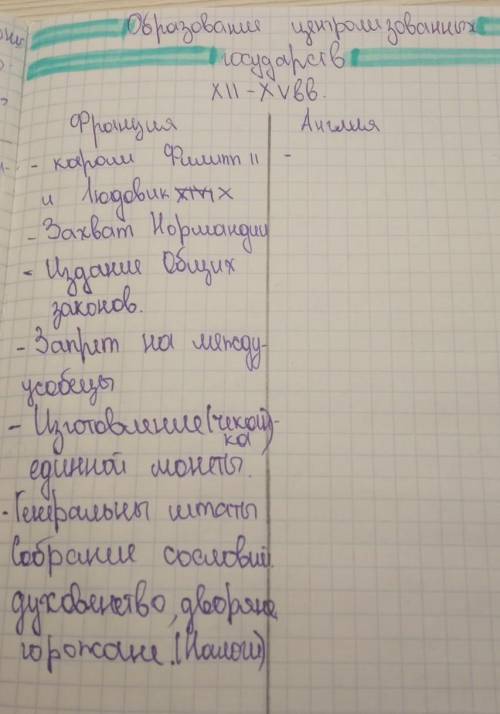 Образование централизованных
государств
XII-XVвв.
Франция
Англия
- кароли Филипп II
-
и Людовик X
- Захват Нормандии
- Издание Общих
законов.
- Запрет на между-
усобецы
- Изготовление (чекан-
ка)
единной монеты.
- Генеральны штаты
Собрание сословий
духовенство, дворяне
горожане. (Налоги)